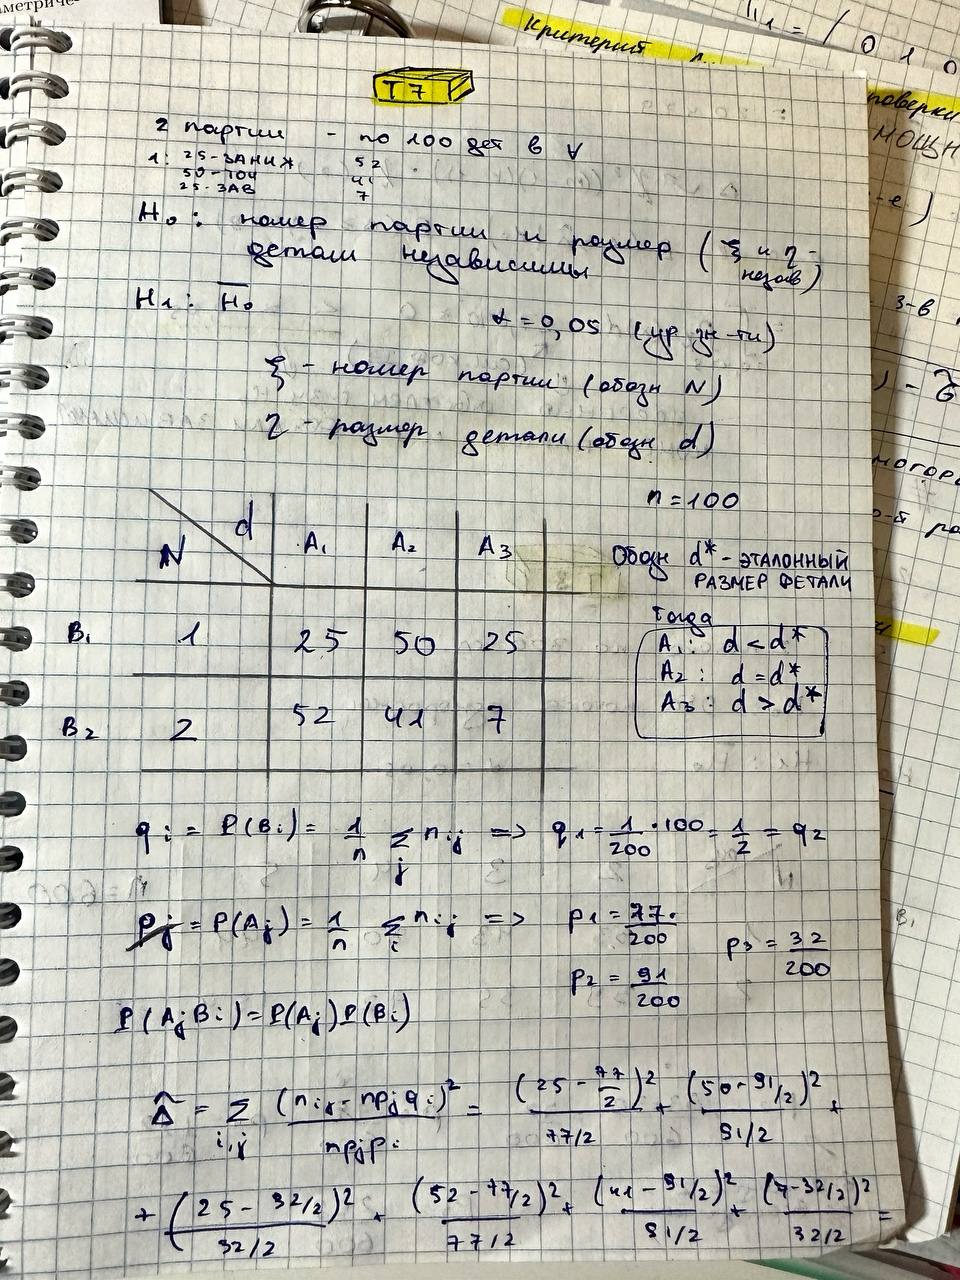 аметриче
Критерий
T 7
2 партии - по 100 дет в ∀
1: 25-ЗАНИЖ 52
50-ТОЧ 41
25-ЗАВ 7
H₀: номер партии и размер (ξ и η -
детали независимы незав)
H₁: H̅₀
α = 0,05 (ур зн-ти)
ξ - номер партии (обозн N)
η - размер детали (обозн d)
n = 100
N d A₁ A₂ A₃
B₁ 1 25 50 25
B₂ 2 52 41 7
Обозн d* - ЭТАЛОННЫЙ
РАЗМЕР ФЕТАЛИ
Тогда
A₁: d < d*
A₂: d = d*
A₃: d > d*
qᵢ = P(Bᵢ) = 1/n Σⱼ nᵢⱼ => q₁ = 1/200 · 100 = 1/2 = q₂
pⱼ = P(Aⱼ) = 1/n Σᵢ nᵢⱼ => p₁ = 77/200
p₂ = 91/200 p₃ = 32/200
P(AⱼBᵢ) = P(Aⱼ)P(Bᵢ)
Δ̂ = Σᵢ,ⱼ (nᵢⱼ - npⱼqᵢ)²/npⱼpᵢ = (25 - 77/2)²/77/2 + (50 - 91/2)²/91/2 +
+ (25 - 32/2)²/32/2 + (52 - 77/2)²/77/2 + (41 - 91/2)²/91/2 + (7 - 32/2)²/32/2 =
0 1 0
поверки
МОЩН
з-в